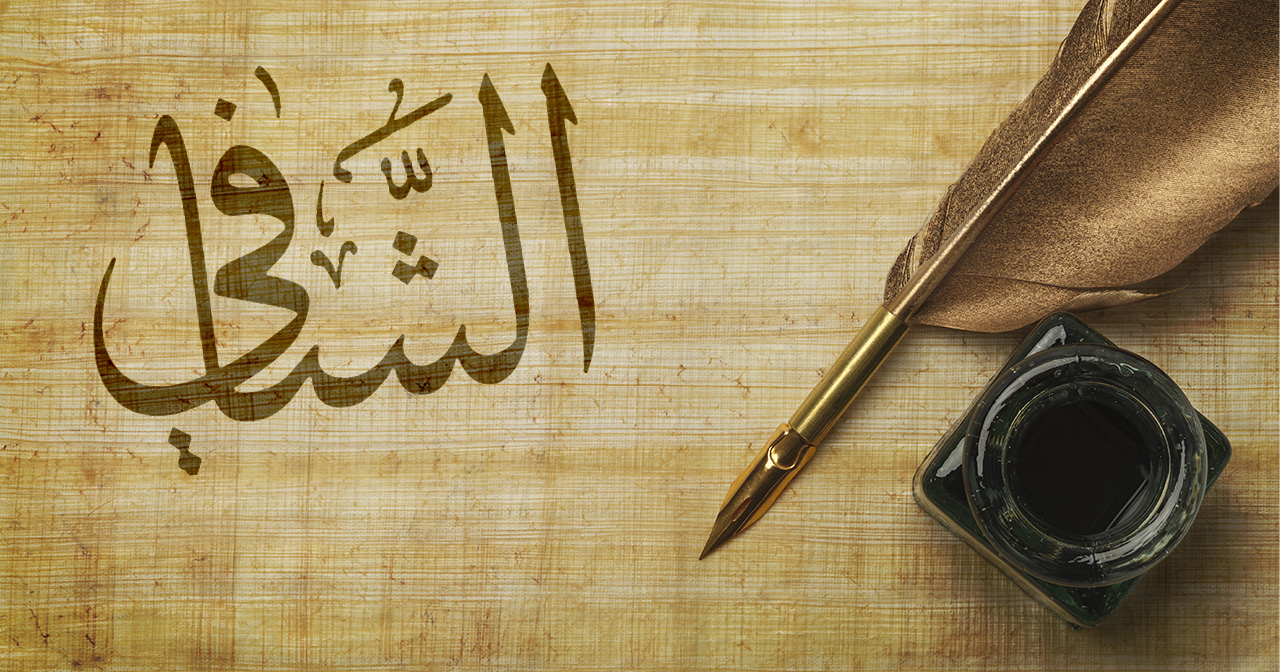 الشَّافي